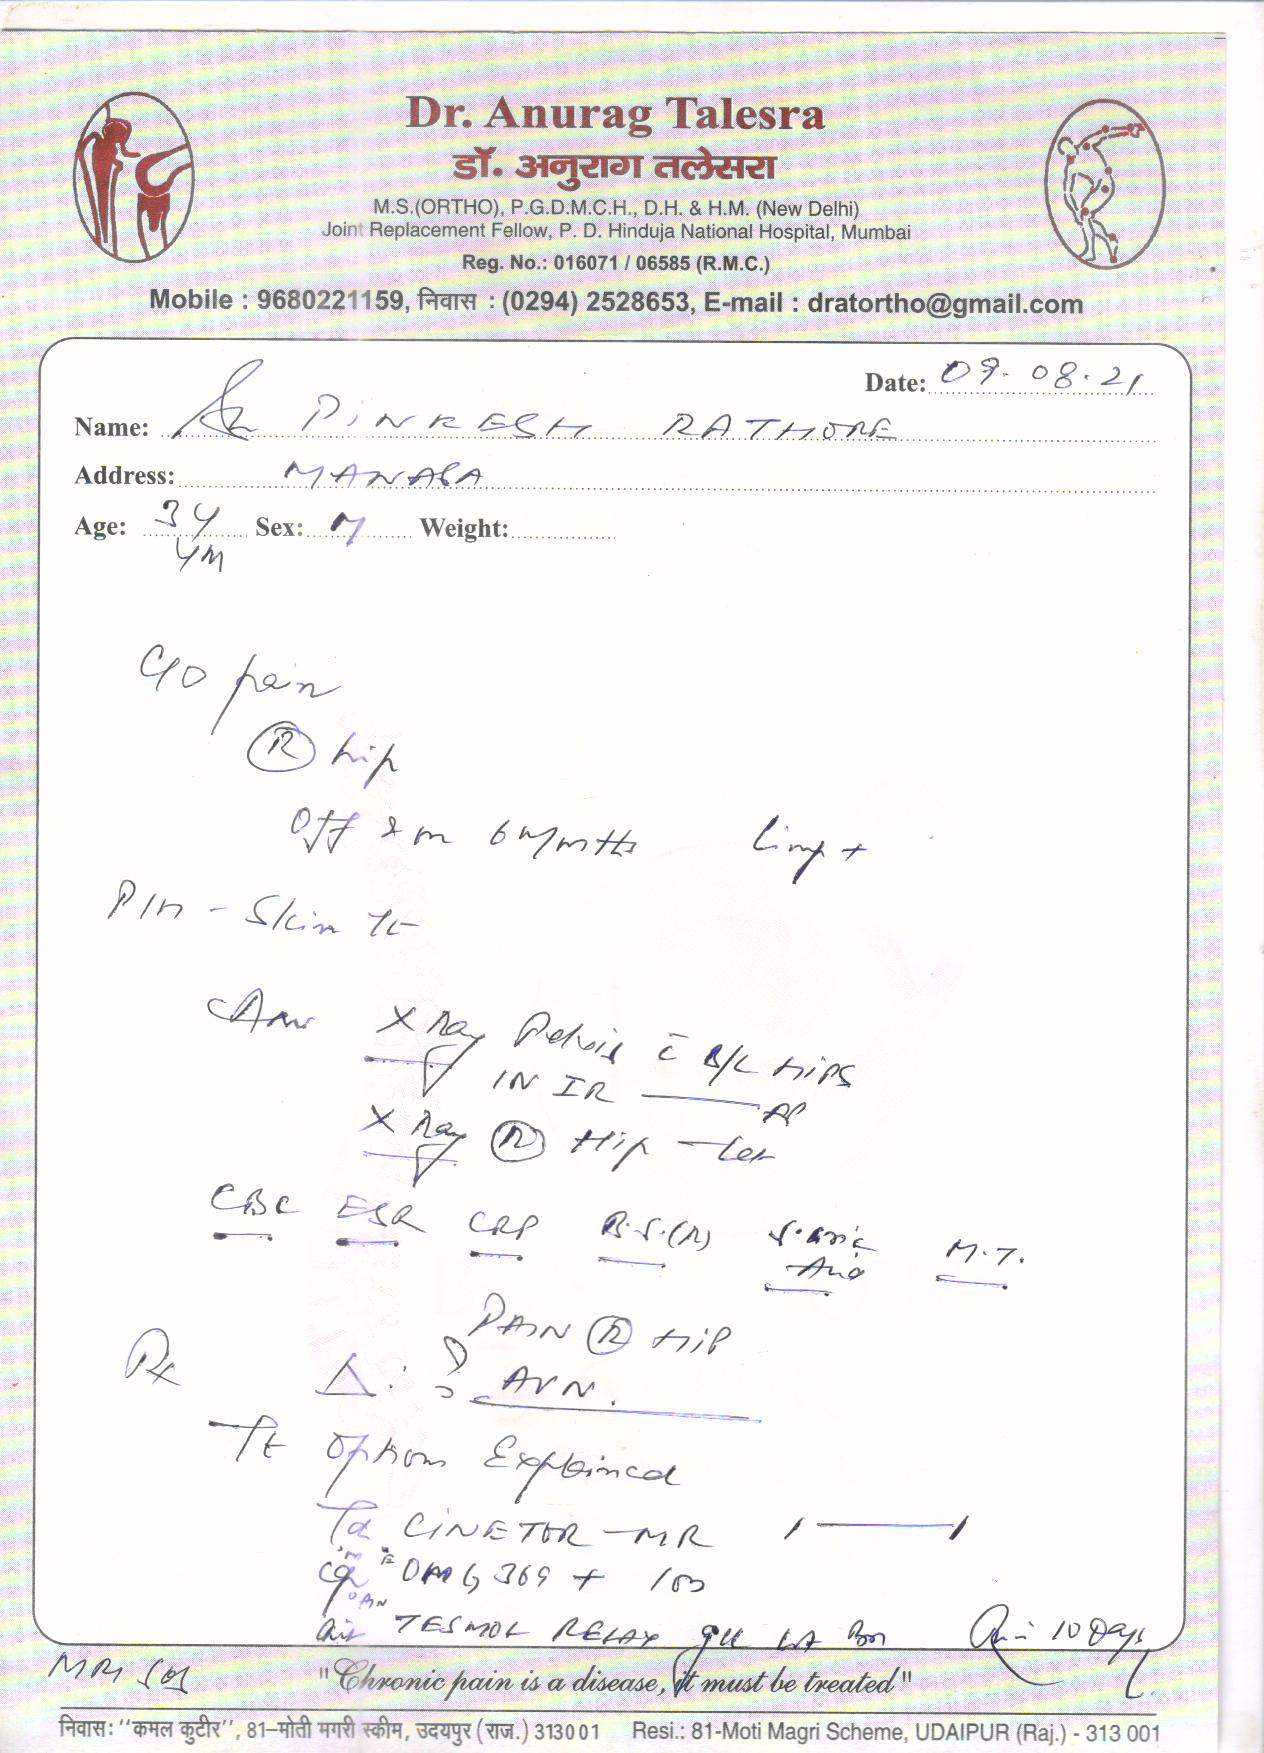 Dr. Anurag Talesra
डॉ. अनुराग तलेसरा
M.S.(ORTHO), P.G.D.M.C.H., D.H. & H.M. (New Delhi)
Joint Replacement Fellow, P. D. Hinduja National Hospital, Mumbai
Reg. No.: 016071 / 06585 (R.M.C.)
Mobile : 9680221159, निवास : (0294) 2528653, E-mail : dratortho@gmail.com
Date: 09.08.21
Name: PINKESH RATHORE
Address: MANASA
Age: 34 Sex: M Weight:
YM
C/O pain
R hip
Off & on 6 months Limp +
P/H - Skin Tt
Adv X Ray Pelvis c̄ B/L HIPS
IN IR AP
X Ray R Hip - Lat
CBC ESR CRP B.S.(R) S. uric M.T.
Acid
PAIN R HIP
Rx Δ: ? AVN.
Tt options Explained
Tab CINETOR - MR 1 — 1
cap OMG 369 +
TESMOL RELAY gel LA 10 Days
"Chronic pain is a disease, it must be treated"
निवास: "कमल कुटीर", 81-मोती मगरी स्कीम, उदयपुर (राज.) 313001 Resi.: 81-Moti Magri Scheme, UDAIPUR (Raj.) - 313 001